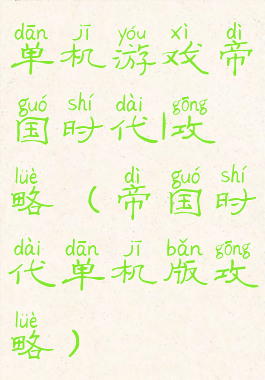 dān jī yóu xì dì
单机游戏帝
guó shí dài gōng
国时代|攻
lüè dì guó shí
略（帝国时
dài dān jī bǎn gōng
代单机版攻
lüè
略）